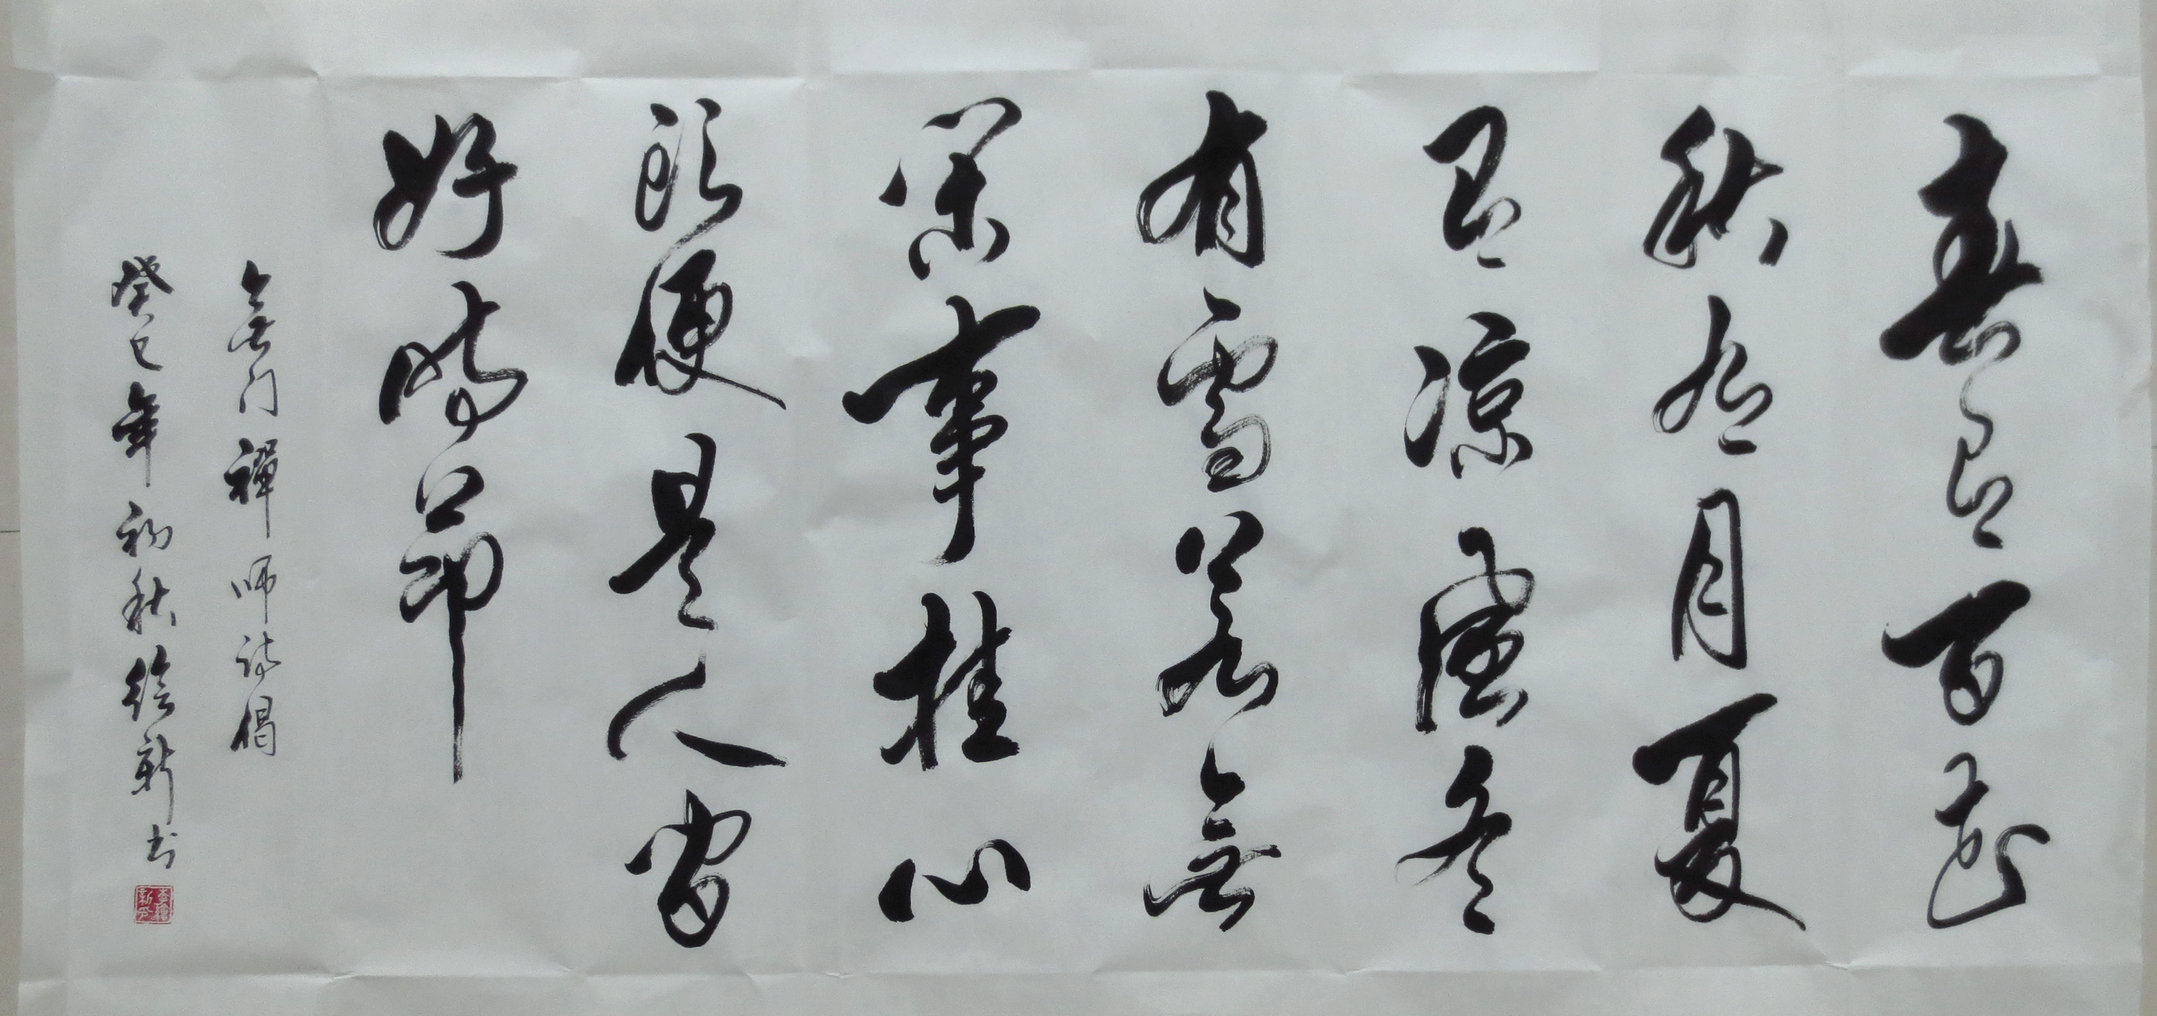 春有百花
秋有月夏
有凉風冬
有雪若無
閑事挂心
頭便是人間
好時節
無门禪师诗偈
癸巳年初秋绘新书